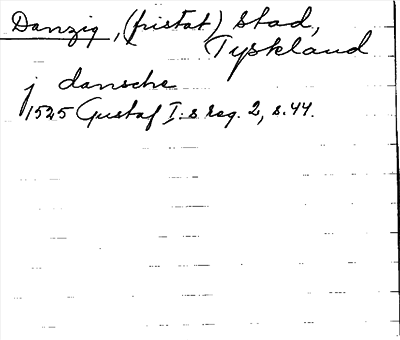 Danzig, (fristat) Stad,
Tyskland
j dansche
1525 Gustaf I:s reg. 2, s. 44.